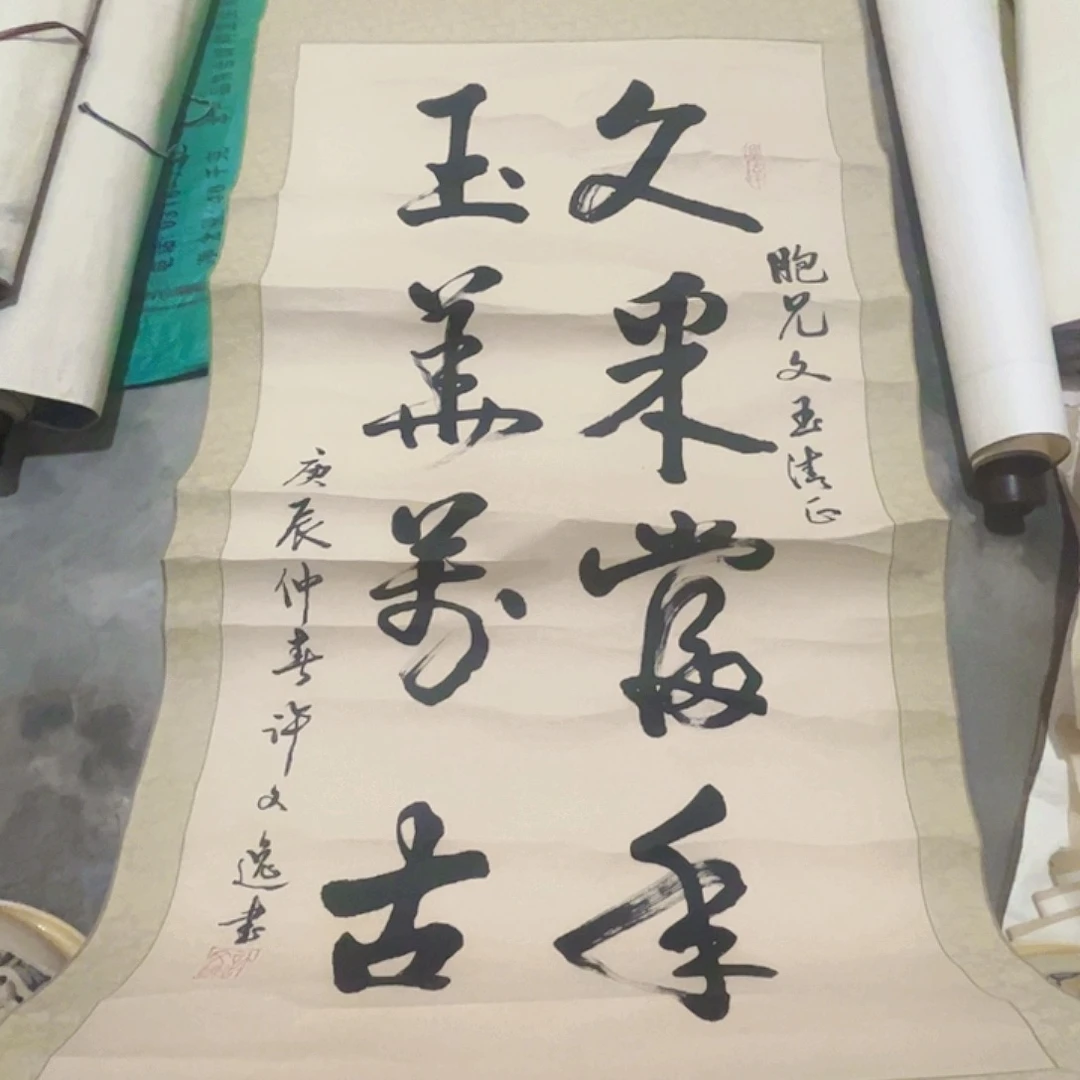 胞兄文玉清正
文采當年
玉華萬古
庚辰仲春许文逸書